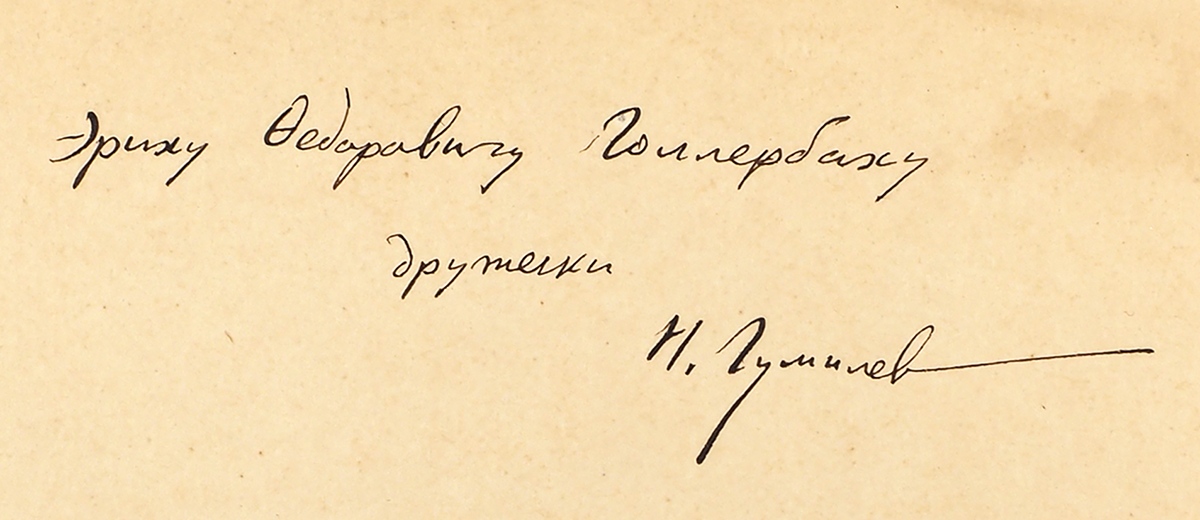 Эриху Ѳедоровичу Голлербаху
дружески
Н. Гумилев